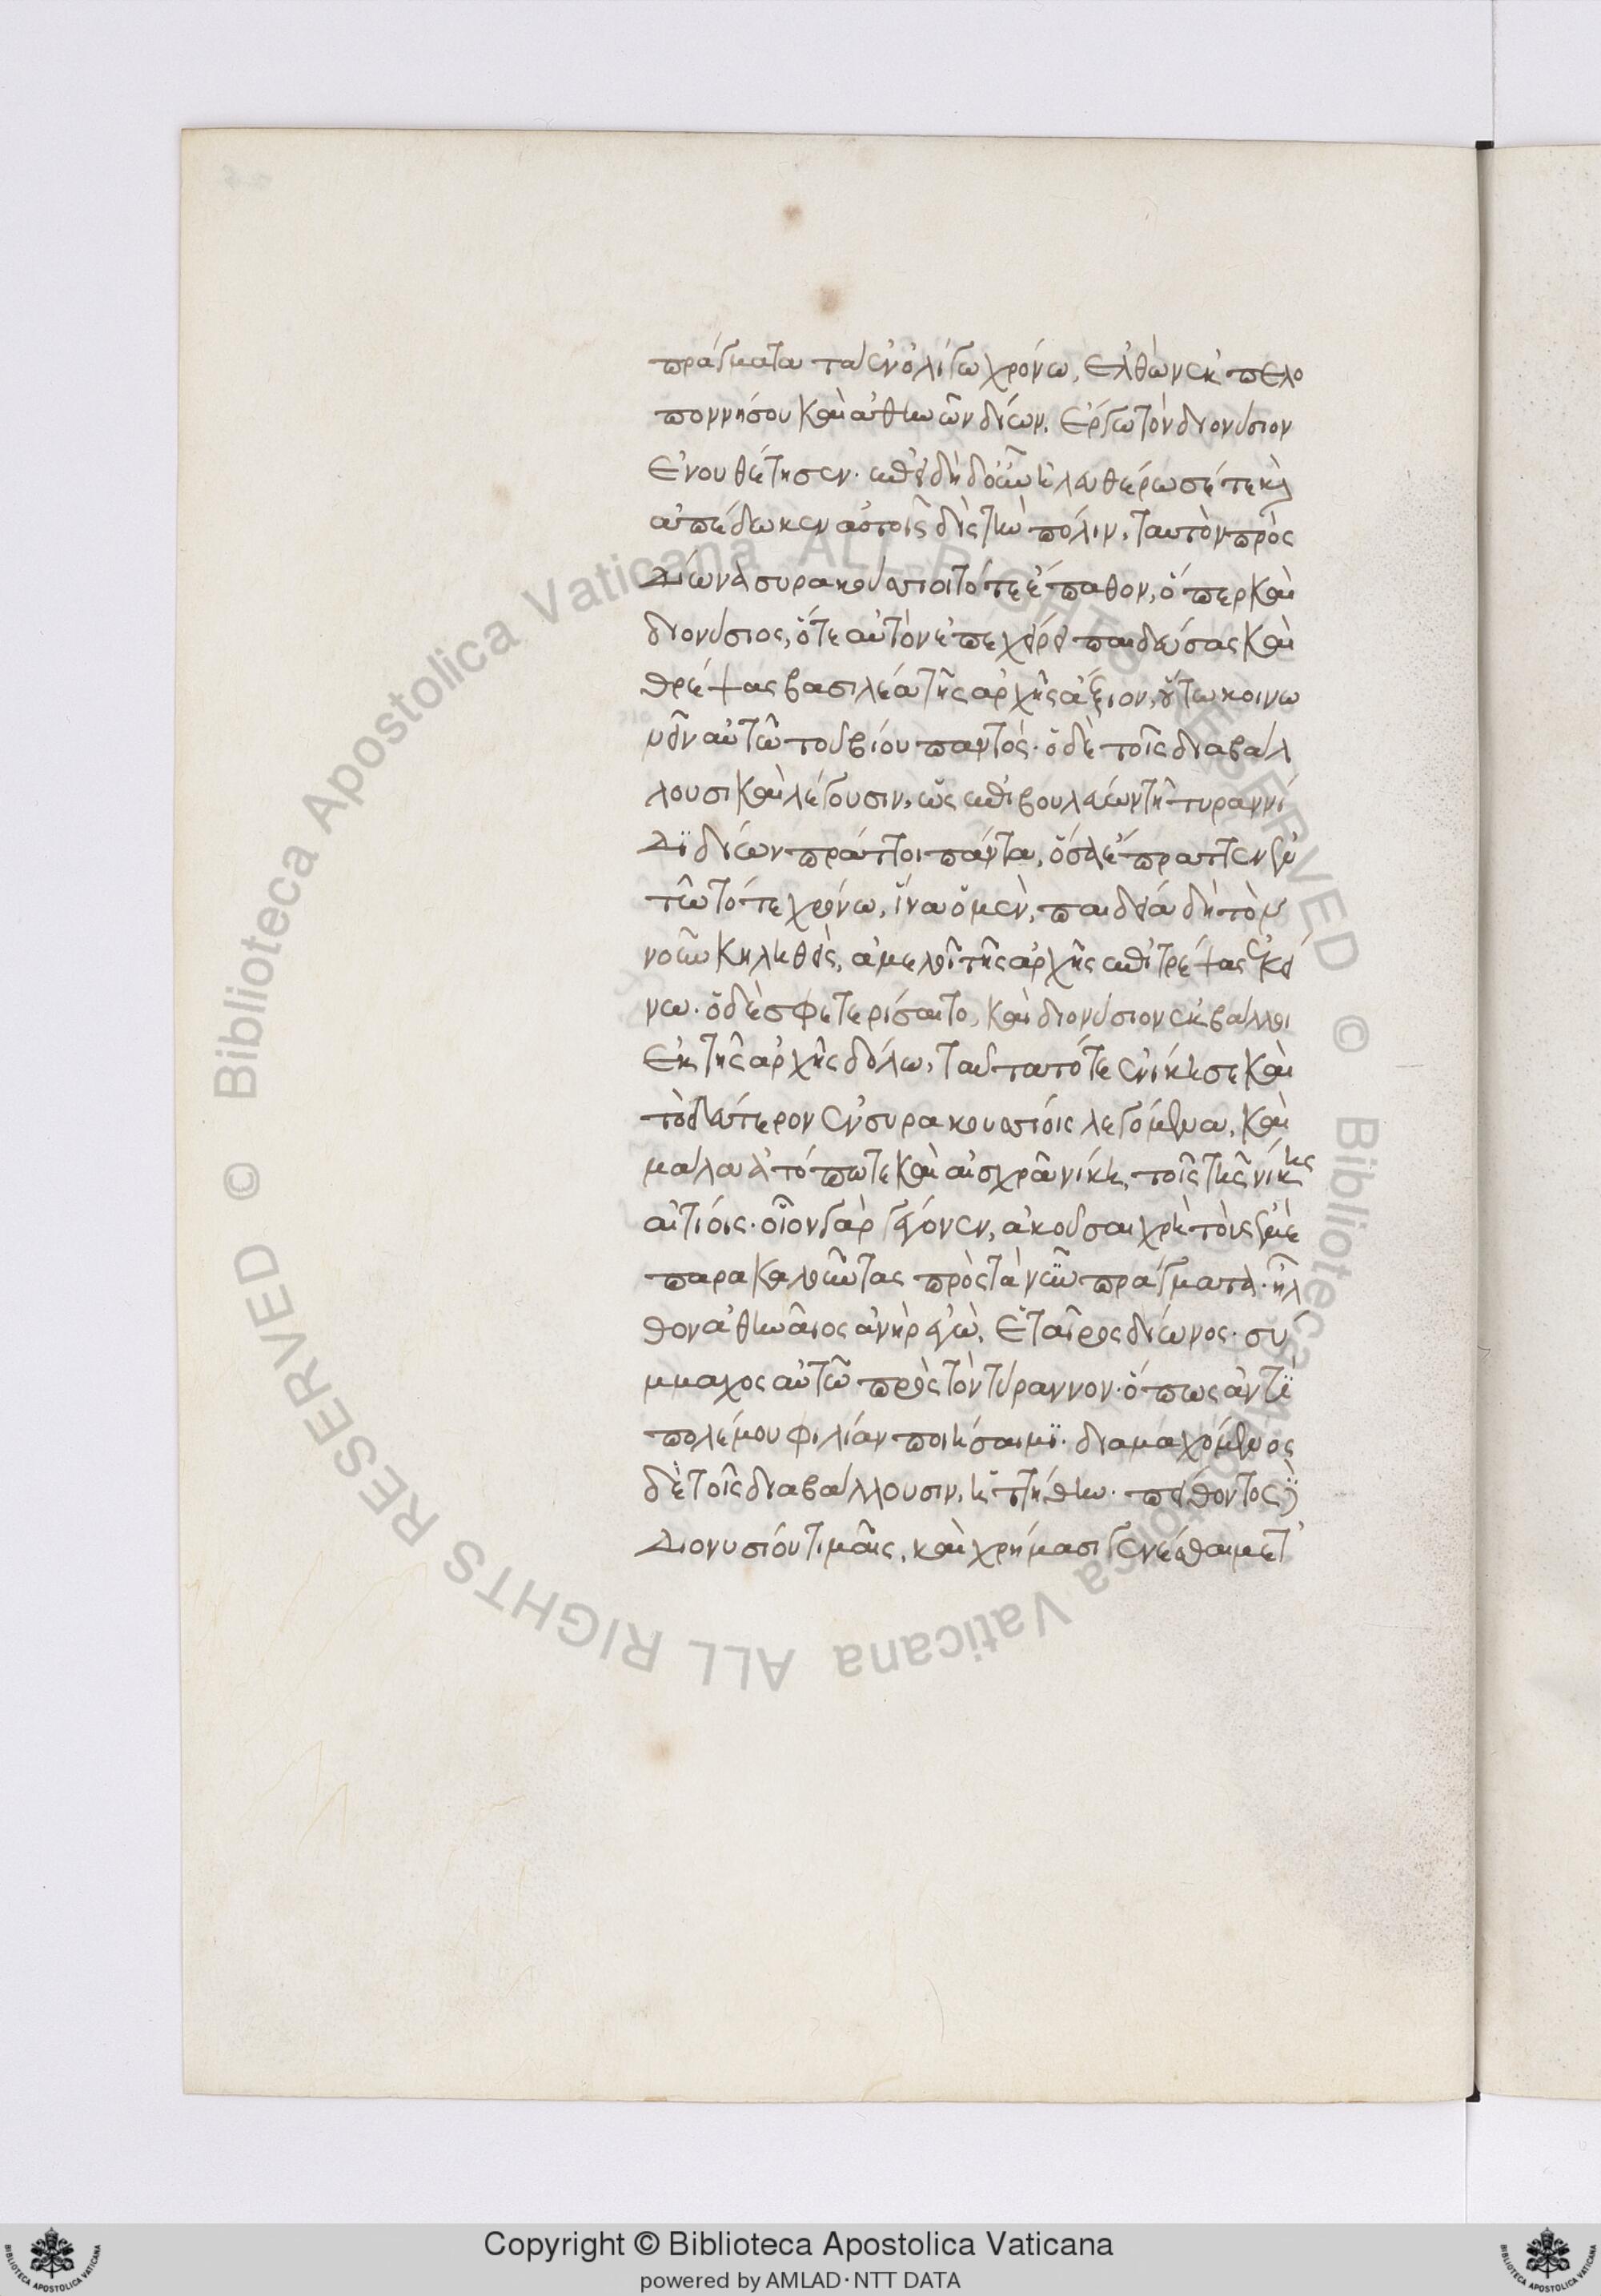 πράγματα τὰ ἐν ὀλίγω χρόνω, ἐλθὼν ἐκ πελο
ποννήσου καὶ ἀθηνῶν δίων, ἔργω τὸν διονύσιον
ἐνουθέτησεν. ἐπειδὴ δ' οὖν ἠλευθέρωσέ τε καὶ
ἀπέδωκεν αὐτοῖς δὶς τὴν πόλιν, ταυτὸν πρὸς
Δίωνα συρακούσιοι τότε ἔπαθον, ὅπερ καὶ
διονύσιος, ὅτε αὐτὸν ἐπεχείρει παιδεύσας καὶ
θρέψας βασιλέα τῆς ἀρχῆς ἄξιον, οὕτω κοινω
νεῖν αὐτῶ τοῦ βίου παντός. ὁ δὲ τοῖς διαβάλ
λουσι καὶ λέγουσιν, ὡς ἐπιβουλεύων τῆ τυραννί
Δϊ δίων πράττοι πάντα, ὅσα ἔπραττεν ἐν
τῶ τότε χρόνω, ἵνα ὁ μὲν, παιδεία δὴ τὸν
νοῦν κηληθεὶς, ἀμελοῖ τῆς ἀρχῆς ἐπιτρέψας ἐκεί
νω. ὁ δὲ σφετερίσαιτο, καὶ διονύσιον ἐκβάλλοι
ἐκ τῆς ἀρχῆς δόλω, ταῦτα τότε ἐνίκησε καὶ
τὸ δεύτερον ἐν συρακουσίοις λεγόμενα, καὶ
μάλα ἀτόπω τε καὶ αἰσχρᾶ νίκη, τοῖς τῆς νίκης
αἰτίοις. οἷον γὰρ γέγονεν, ἀκοῦσαι χρὴ τοὺς ἐμὲ
παρακαλοῦντας πρὸς τὰ νῦν πράγματα. ἦλ
θον ἀθηναῖος ἀνὴρ ἐγὼ, ἑταῖρος δίωνος. σύ
μμαχος αὐτῶ πρὸς τὸν τύραννον. ὅπως ἀντὶ
πολέμου φιλίαν ποιήσαιμϊ. διαμαχόμενος
δὲ τοῖς διαβάλλουσιν, ἡττήθην. πείθοντος
Διονυσίου τιμαῖς, καὶ χρήμασι γενέσθαι μετ'